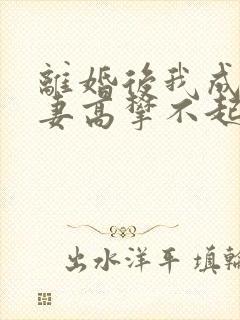 離婚後我成
妻高攀不起
出水洋平 填輪